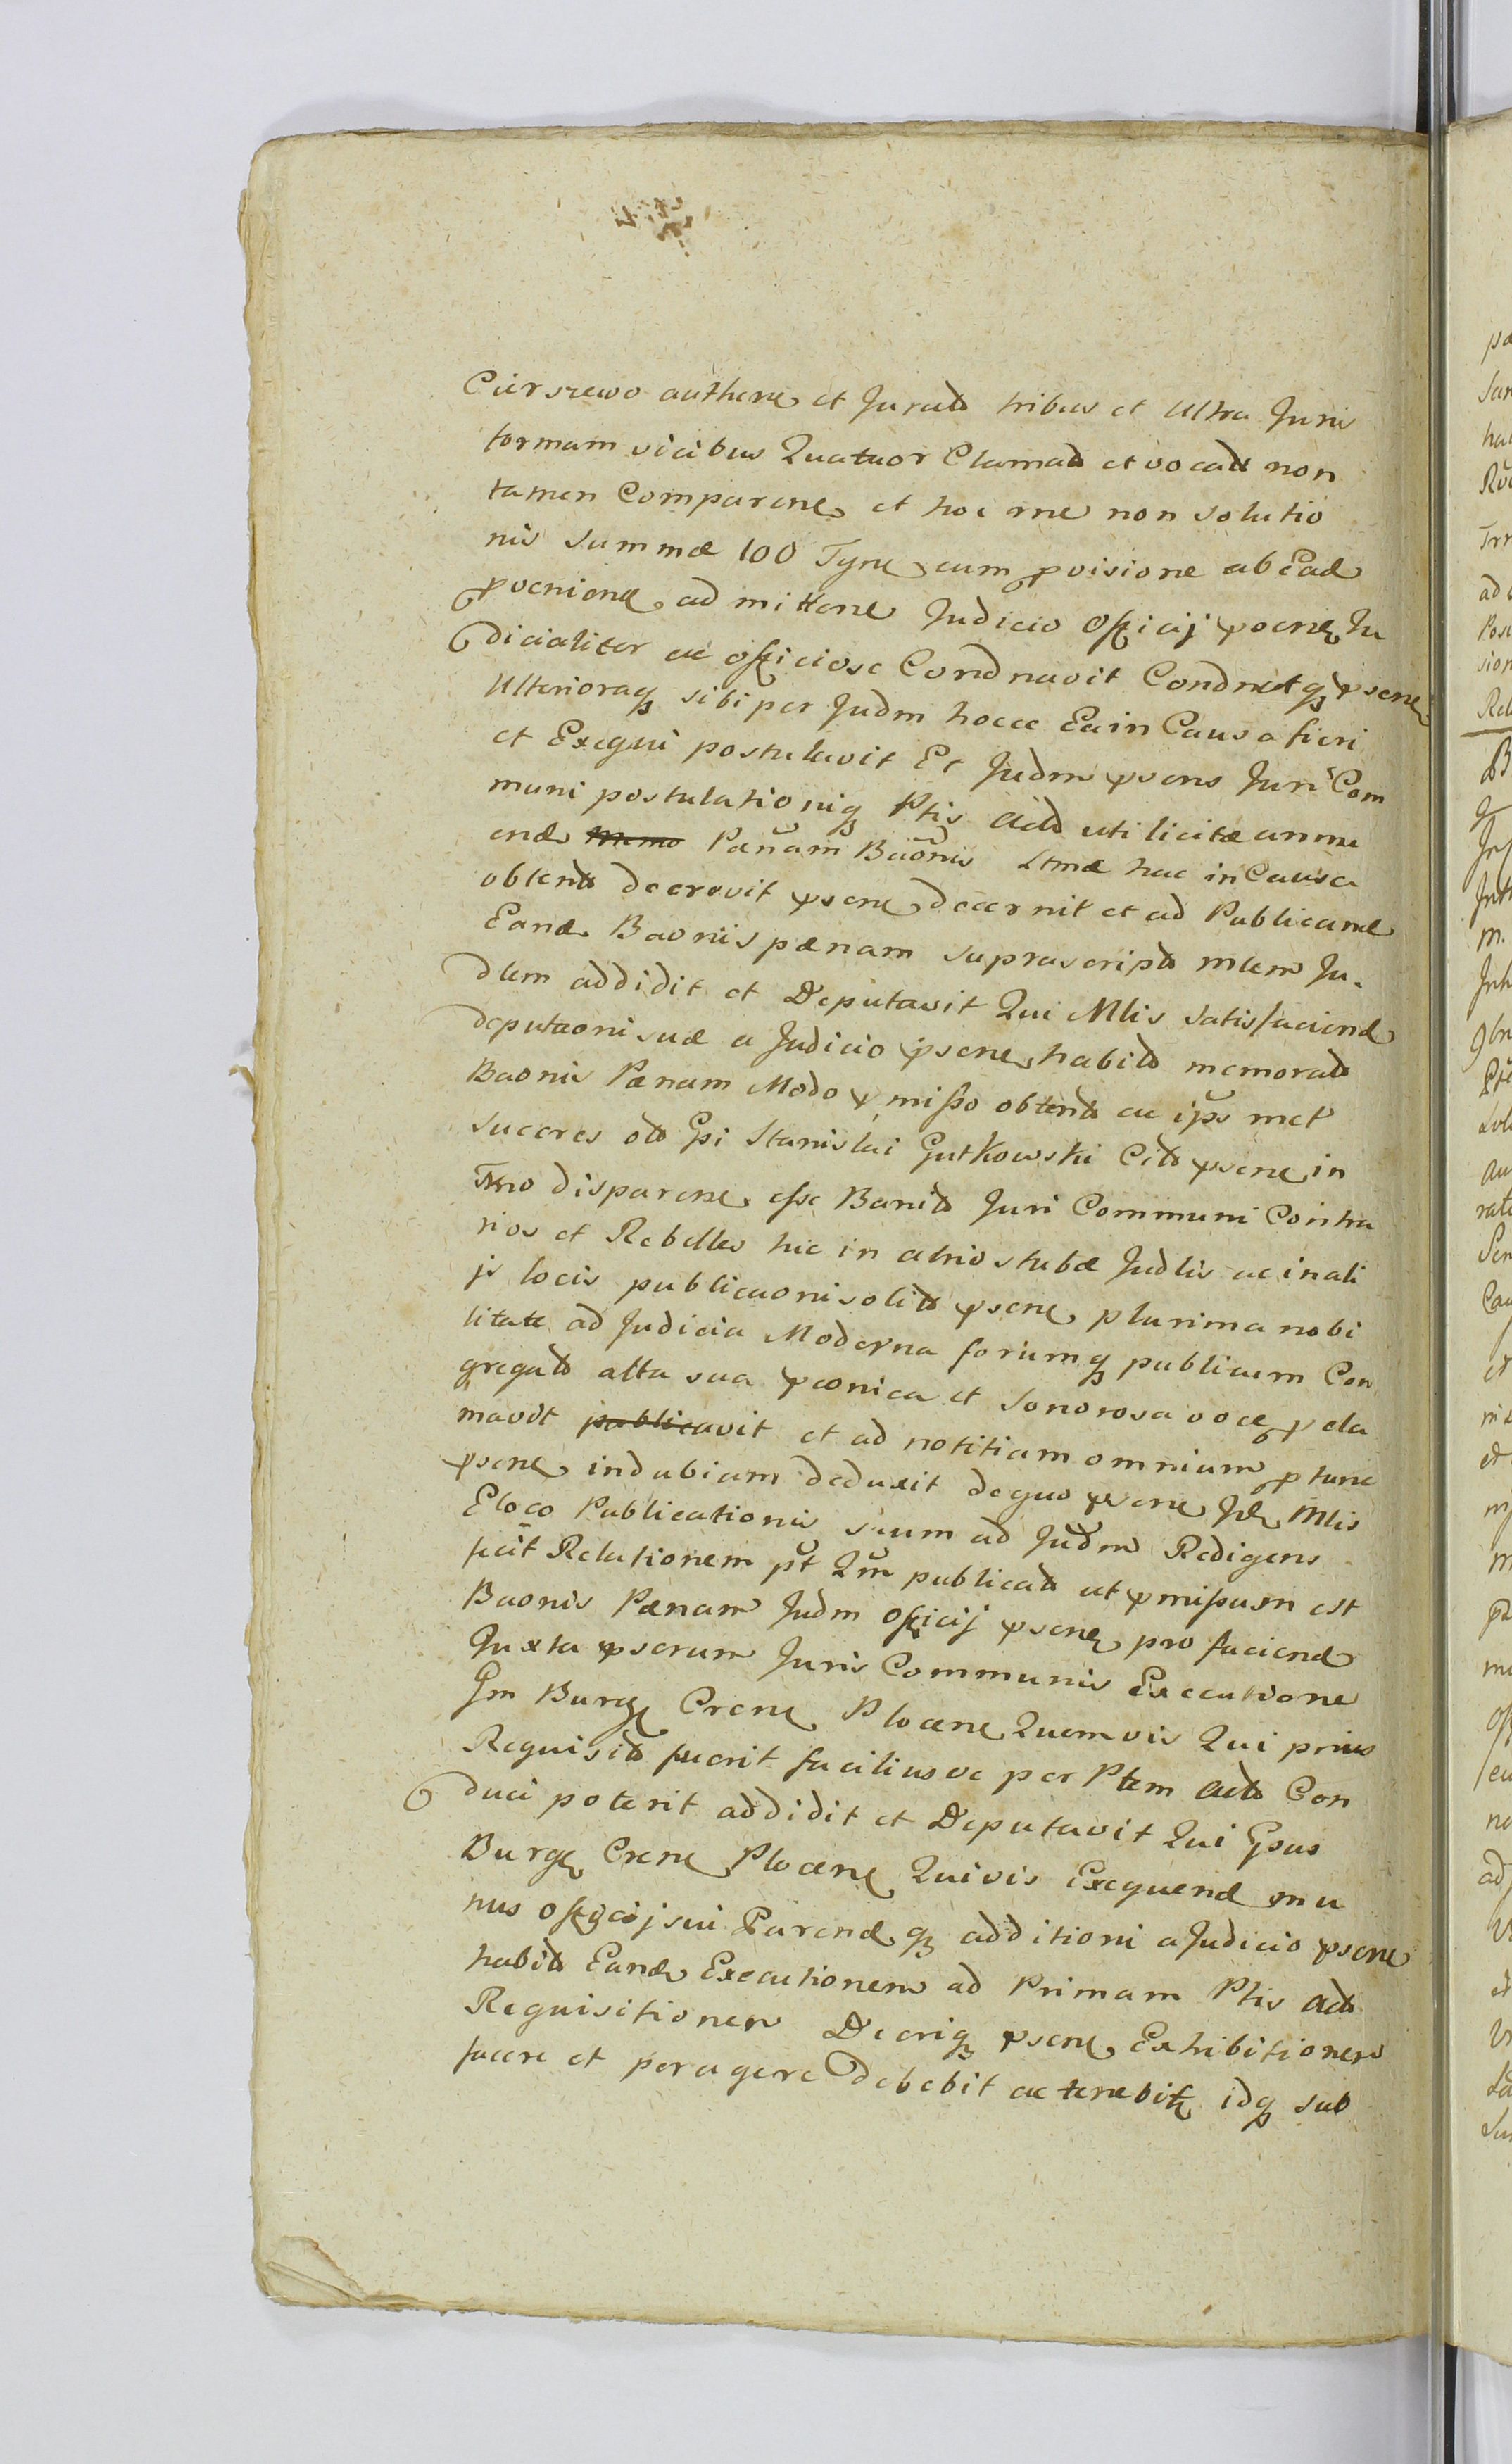 Cierszewo authene et Jurato tribus et Ultra Juris
formam vicibus Quatuor Clamato et vocato non
tamen Comparene et hoc rne non solutio
nis summæ 100 Tyne cum pvisione ab Ead
pveniene admittene Judicio Officij psene Ju
dicialiter ac officiose Condnavit Condnatq psene
Ulterioraq sibi per Judm hocce Ea in Causa fieri
et Exequi postulavit Et Judm psens Juri Com
muni postulationiq Ptis Acto uti licitæ annu
end Pænam Baonis Ltmæ hac in Causa
obtento decrevit psene decernit et ad Publicand
Eand Baonis pænam suprascripto mlem Ju-
dlem addidit et Deputavit Qui Mlis satisfaciend
deputaoni suæ a Judicio psene habito memorato
Baonis Pænam Modo pmisso obtento ac ips met
succres olo Gsi Stanislai Gutkowski Cito psene in
Tmno disparene esse Banito Juri Communi Contra
rios et Rebelles hic in atrio stubæ Judlis ac in ali
js locis publicaoni solito psene plurima nobi
litate ad Judicia Moderna forumq publicum Con
gregato alta sua pconica et sonorosa voce p cla
mavit publicavit et ad notitiam omnium p tunc
psene indubiam deduxit de quo psene Id Mlis
E loco Publicationis suum ad Judm Redigens
fecit Relationem pt Qm publicato ut pmissum est
Baonis Pænam Judm Officij psene pro faciend
Juxta pserum Juris Communis Executione
Gm Burg Crene Plocene Quemvis Qui prius
Requisito fuerit faciliusve per Ptem Acto Con
duci poterit addidit et Deputavit Qui Gsus
Burg Crene Plocene Quivis Exequend mu
nus officij sui Parend q additioni a Judicio psene
habito Eand Executionem ad Primam Ptis Acto
Requisitionem Decriq psene Exhibitionem
facere et peragere debebit ac tenebit idq sub